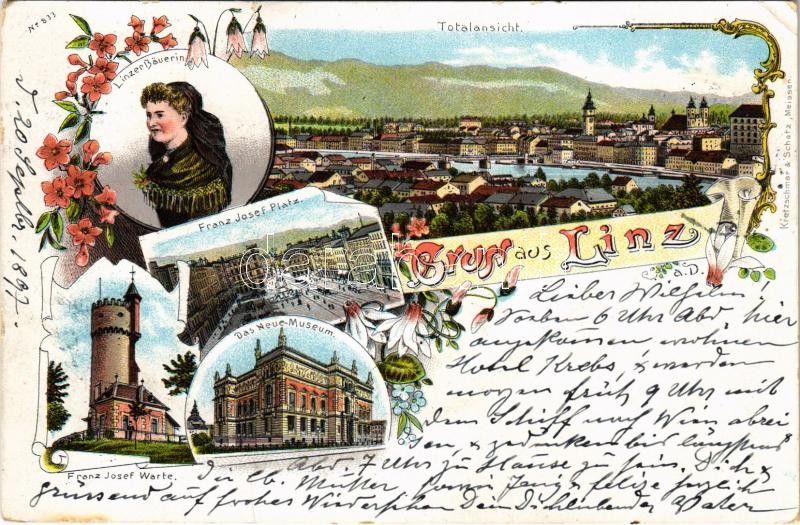 Nº 833
Totalansicht.
Linzer Bäuerin
Kretzschmar & Schatz, Meissen
Franz Josef Platz.
Gruss aus Linz
a.D.
Das Neue Museum.
Franz Josef Warte.
d. 20 1897.
Lieber Wilhelm!
Soeben 6 Uhr Abd. hier
angekommen wohnen
Hotel Krebs, & werden
morgen früh 9 Uhr mit
dem Schiff nach Wien abrei
sen, & gedenken bis längstens
Abd. 7 Uhr zu Hause zu sein. Dich &
die lb. Mutter sowie
grüssend auf frohes Wiedersehen Dein Dichliebender Vater